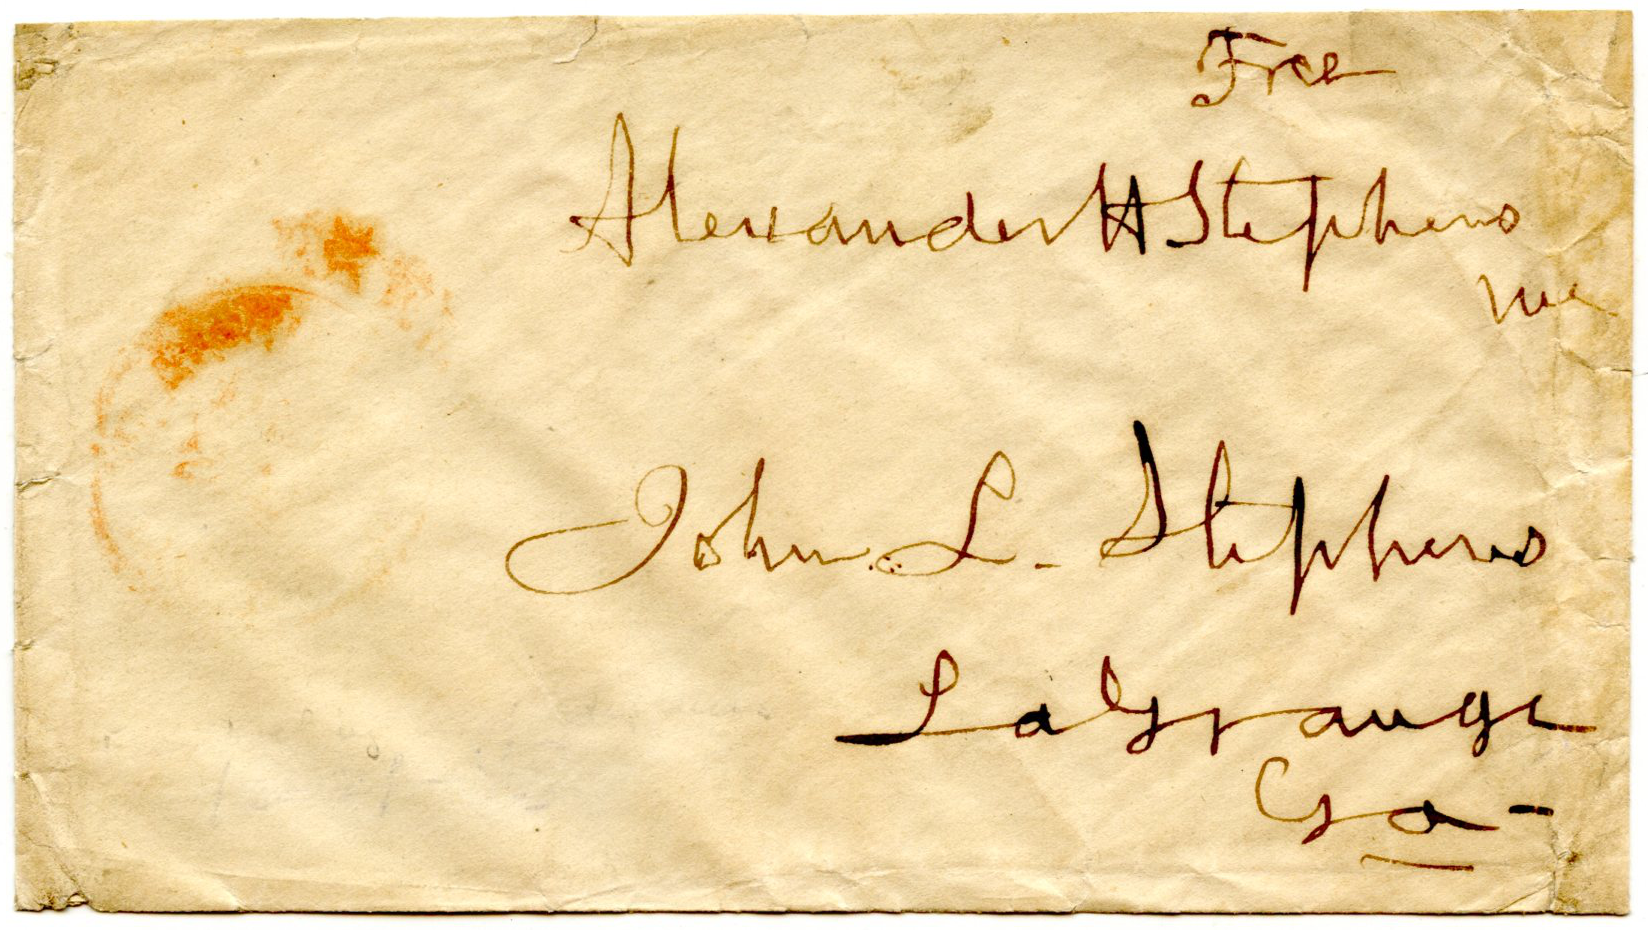 Free
Alexander H Stephens
John L. Stephens
LaGrange
Ga -